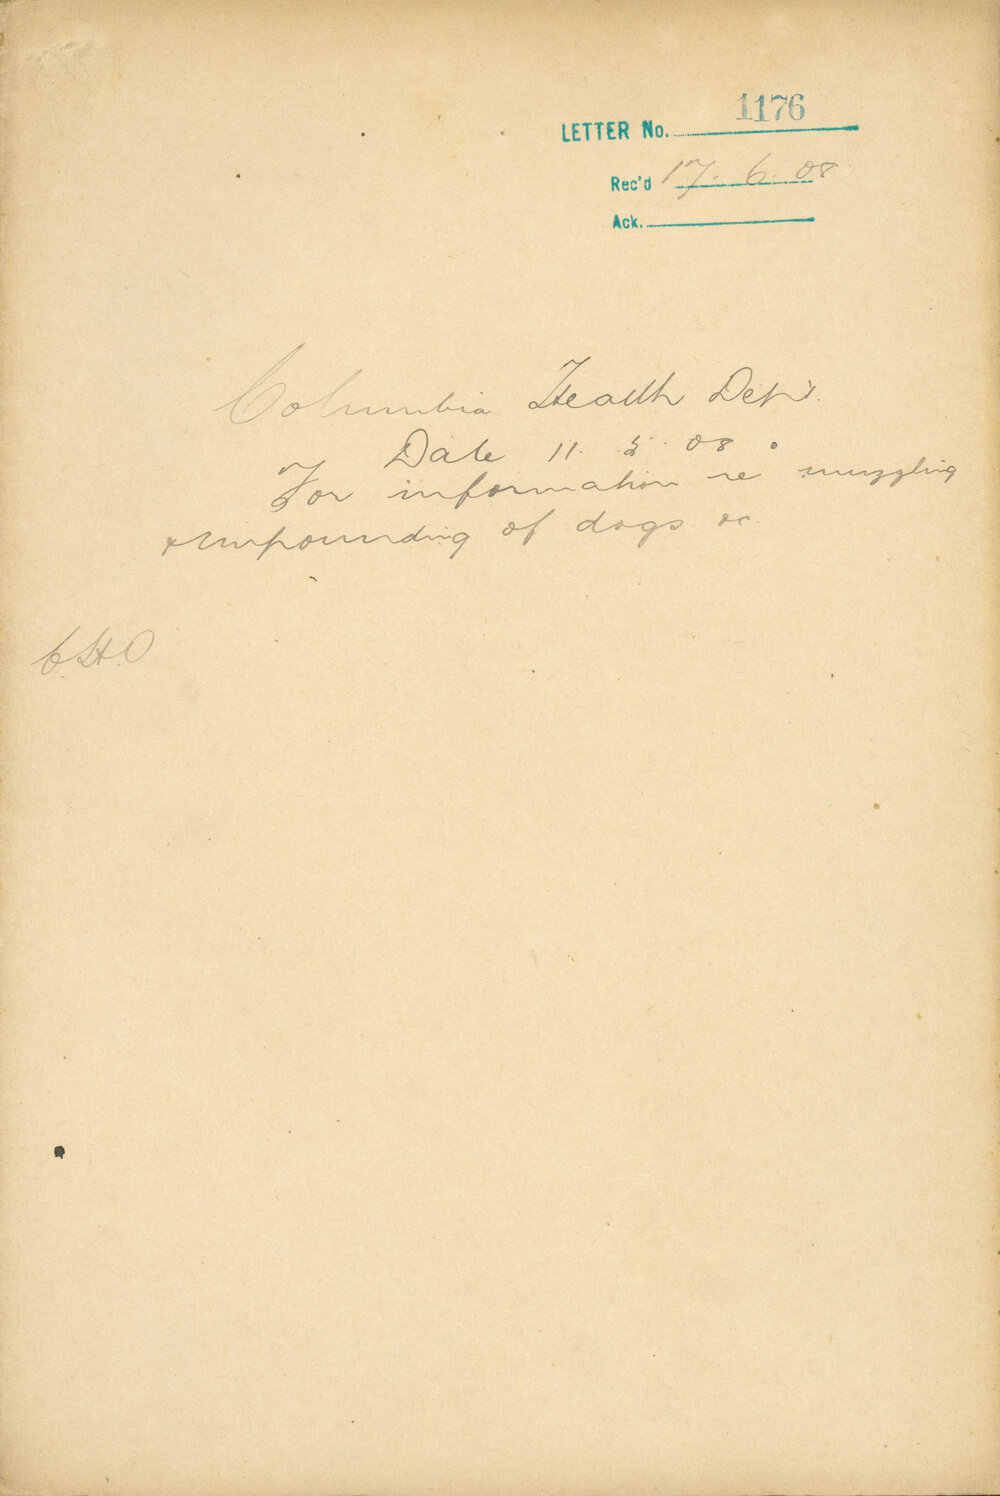 LETTER No. 1176
Rec'd 17. 6. 08
Ack.
Columbia Health Dept.
Date 11. 5. 08.
For information re muzzling
& impounding of dogs &c.
C.H.O